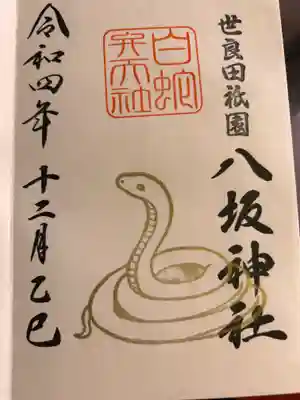 世良田祇園
八坂神社
白蛇
弁天社
令和四年 十二月乙巳